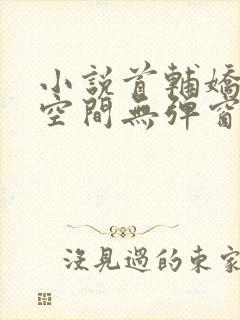 小說首輔嬌
空間無彈窗
沒見過的東家